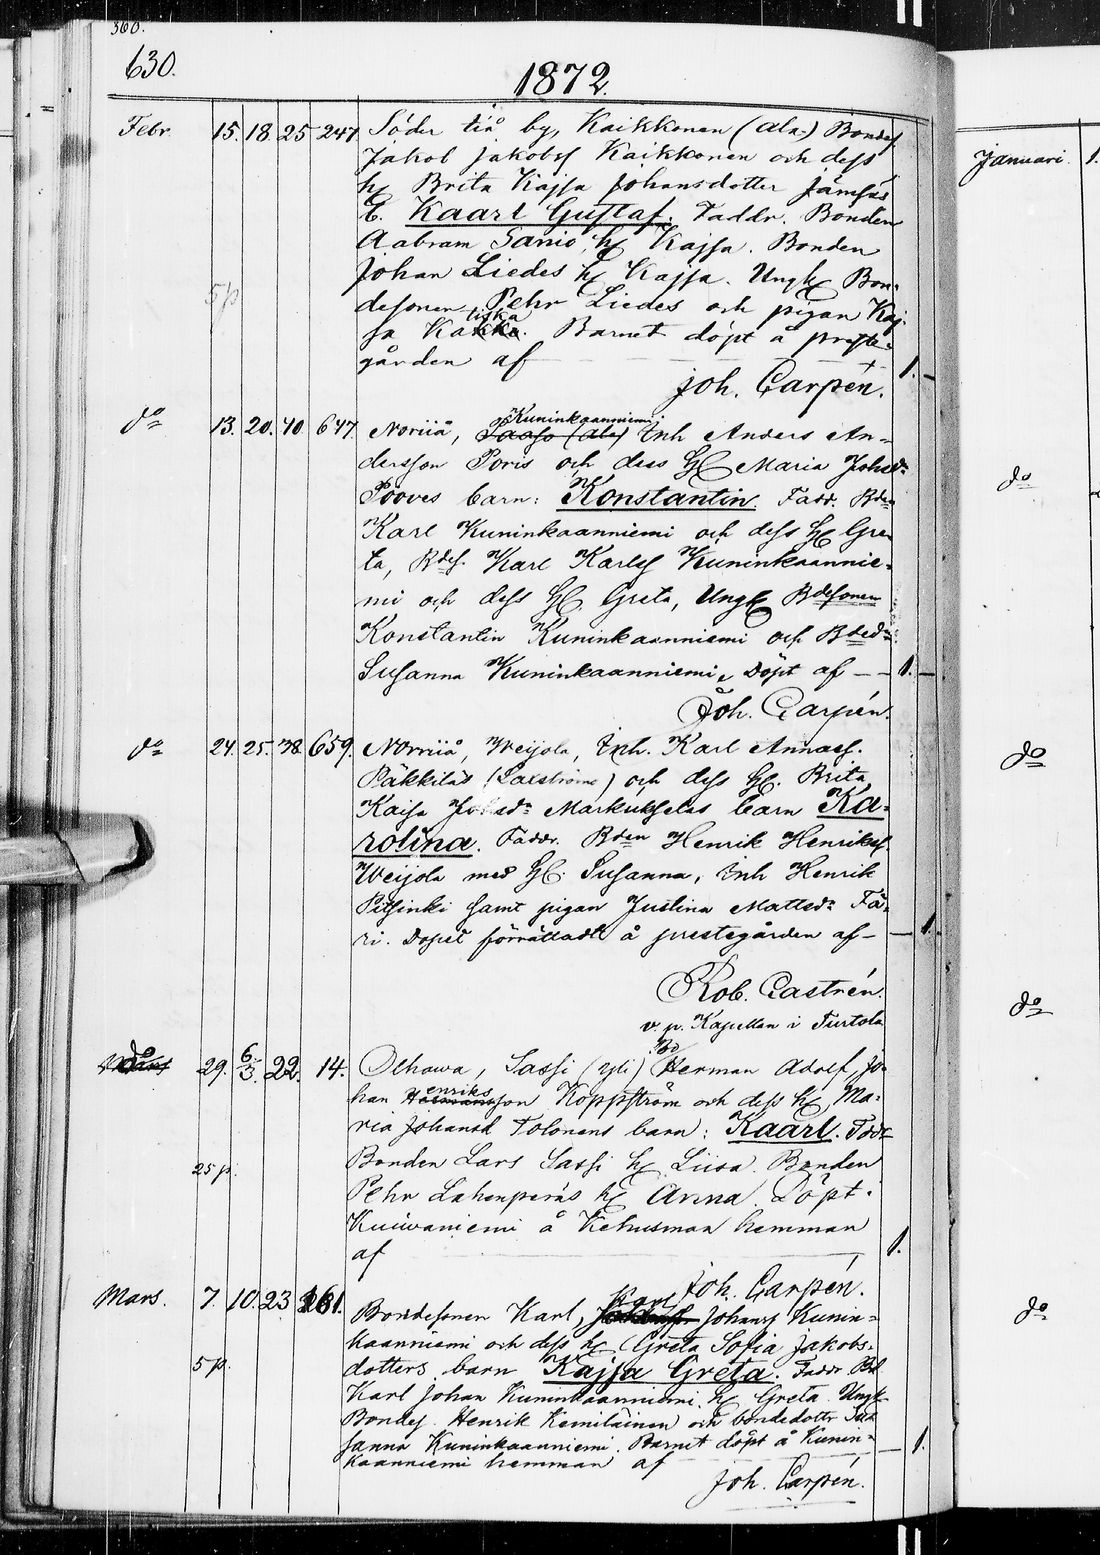 360.
630.
1872.
Febr. 15. 18. 25 247 Söder iiå by, Kaikkonen (ala) Bondes
Jakob Jakobss Kaikkonen och dess
h. Brita Kajsa Johansdotter Jämsäs
b. Kaarl Gustaf. Faddr. Bonden
Aabram Sanio, h. Kajsa. Bonden
Johan Liedes h. Kajsa. Ungk Bon-
5p desonen Pehr Liedes och pigan Kaj-
sa Barnet döpt å preste-
gården af 1. —
Joh. Carpén.
do 13. 20. 40. 647 Noriiå, Kuninkaanniemi Inh Anders An-
dersson Poris och dess H. Maria Johsdr
Pooves barn: Konstantin. Fadd. Bden
Karl Kuninkaanniemi och dess H. Gre
ta, Bdes. Karl Karlss Kuninkaannie-
mi och dess H. Greta, Ungk Bdesonen
Konstantin Kuninkaanniemi och Bded
Susanna Kuninkaanniemi, Döpt af — — 1. —
Joh. Carpén.
do 24. 25. 38. 659. Norriiå, Weijola, Inh. Karl Annass.
Päkkiläs och dess H. Brita
Kaisa Markukselas barn Ka-
rolina. Faddr. Bden Henrik Henrikss.
Weijola med H. Susanna, Inh Henrik
Pitsinki samt pigan Justina Mattsdr Fä-
ri. Dopet förrättadt å prestegården af — — 1.
Rob. Castrén.
v. p. Kapellan i Turtola
do 29. 6/3. 22. 14. Olhawa, Sassi (yli) Bd Herman Adolf, Jo-
han enriksson Koppström och dess h. Ma-
ria Johansd Tolonens barn: Kaarl. Faddr
25 p. Bonden Lars Sassi h. Liisa. Bonden
Pehr Lahenperäs h. Anna. Döpt i
Kuiwaniemi å Kehusmaa hemman
af 1.
Joh. Carpén.
Mars. 7. 10. 23 161. Bondesonen Karl, Karl Johanss Kunin-
kaanniemi och dess h. Greta Sofia Jakobs-
5 p. dotters barn Kajsa Greta. Faddr Bd
Karl Johan Kuninkaanniemi h. Greta Ungk
Bondes. Henrik Kemiläinen och bondedottr Su-
sanna Kuninkaanniemi. Barnet döpt å Kunin- — 1.
kaanniemi hemman af
Joh. Carpén.
Januari. 1.
do
do
do
do